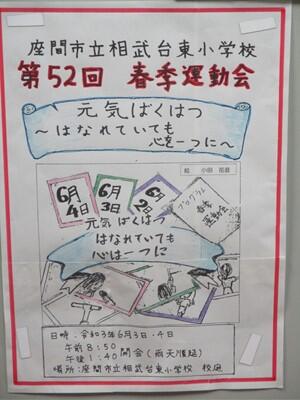 座間市立相武台東小学校
第52回 春季運動会
元気ばくはつ
～はなれていても
心を一つに～
絵 小田
6月
4日
6月
3日
6月
2日
プログラム
春季
運動会
元気ばくはつ
はなれていても
心は一つに
日時:令和3年6月3・4日
午前8:50
午後1:40 開会(雨天順延)
場所:座間市立相武台東小学校 校庭